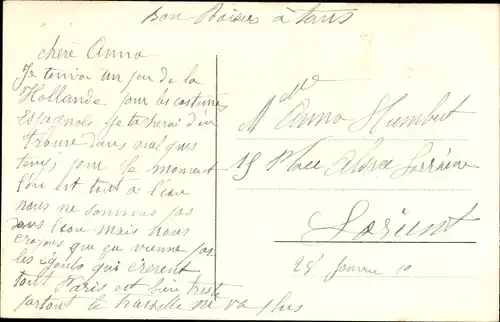 Bon Baisers à tous
chère Anna
Je t'envoie un peu de la
Hollande pour les costumes
Espagnols je tacherai d'en
trouve dans quelques
temps, pour le moment
l'on est tout à l'eau
nous ne sommes pas
dans l'eau mais nous
croyons que ça vienne par
les égouts qui crèvent
tout Paris est bien triste
partout le ne va plus
Melle Anna Humbert
15 Place Alsace Lorraine
Lorient
28 Janvier 10